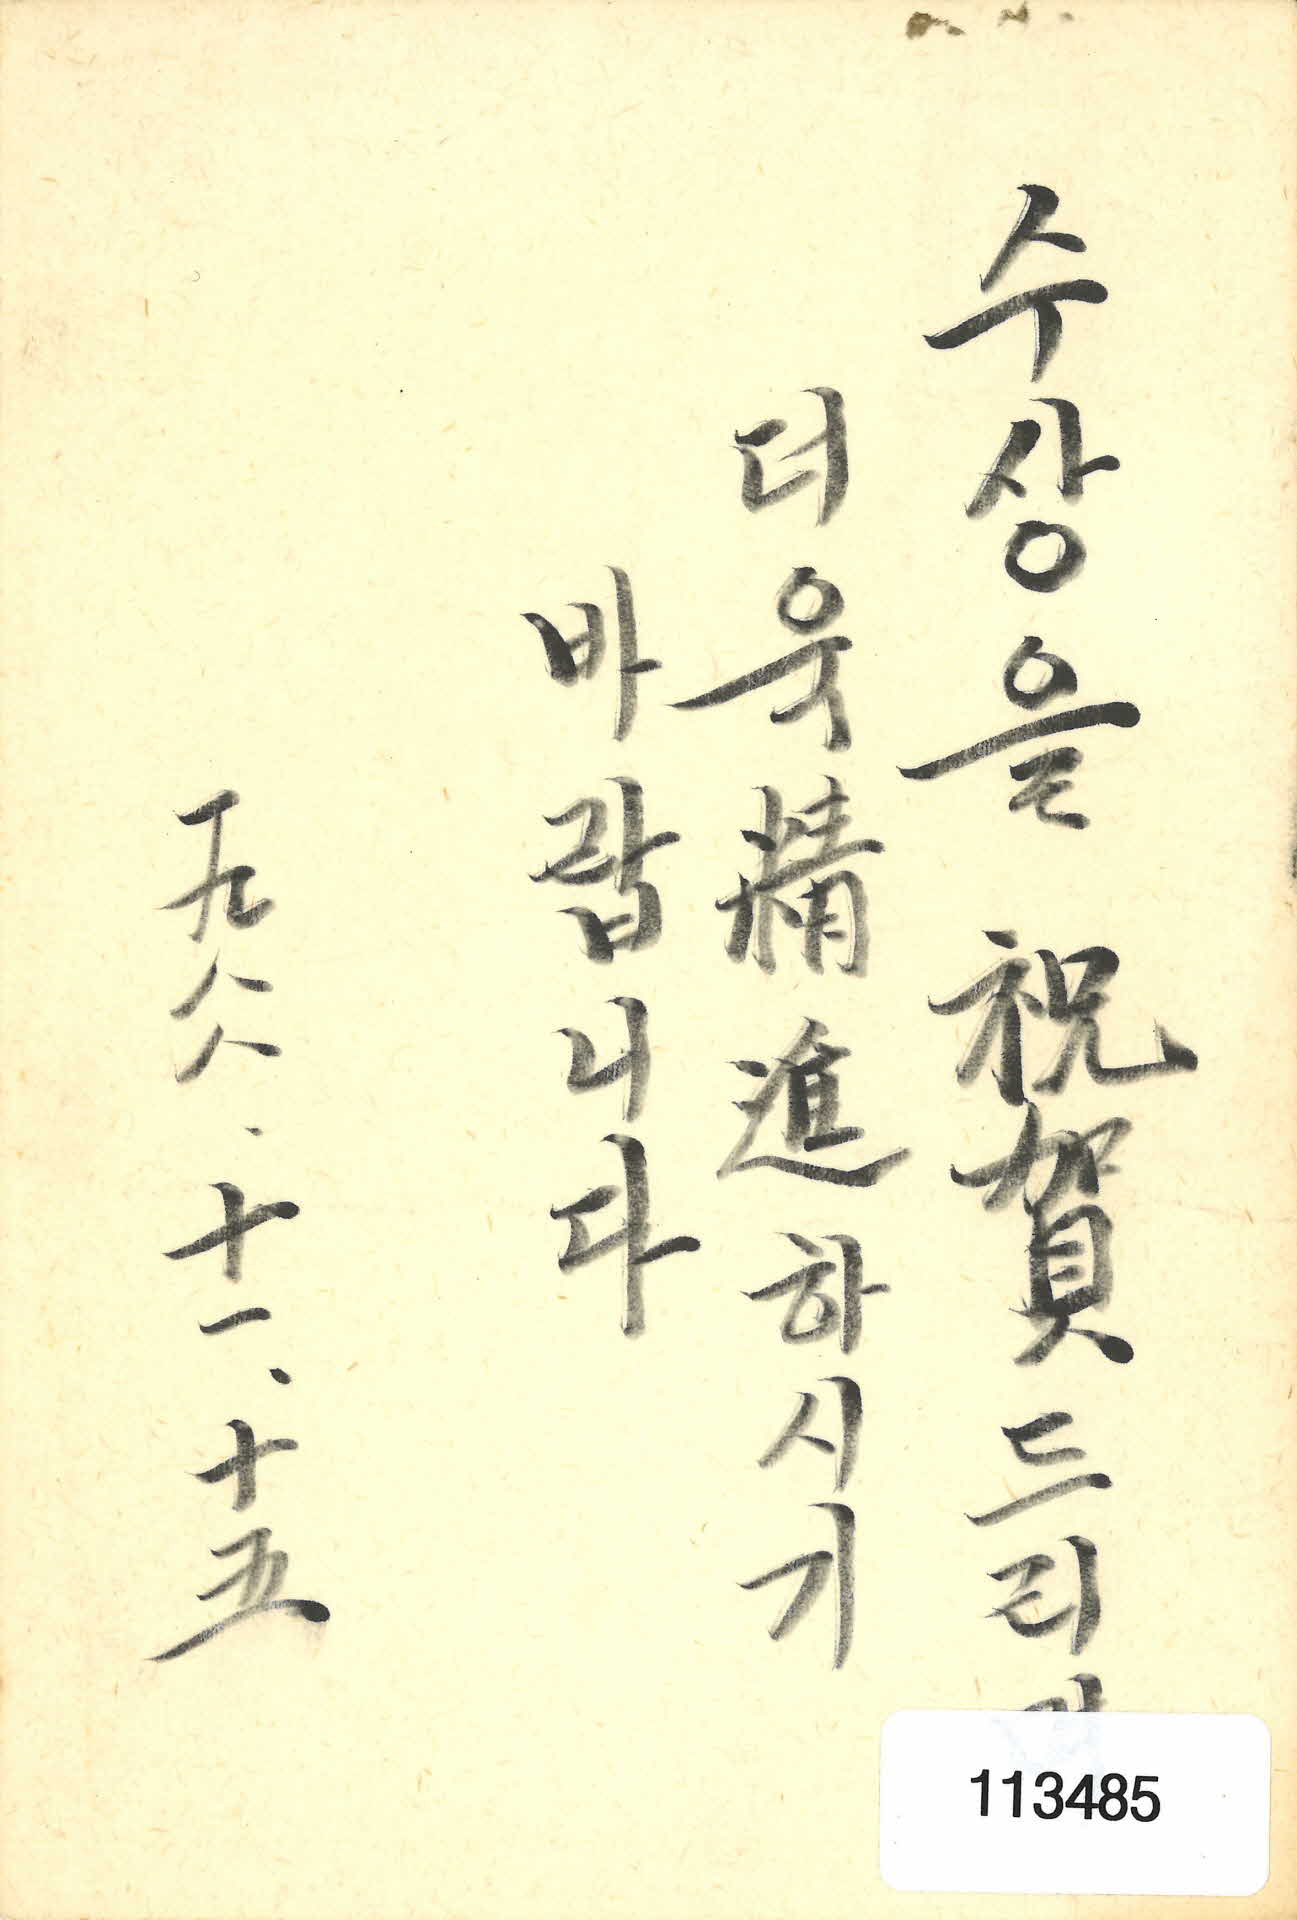 수상을 祝賀드리
더욱 精進하시기
바랍니다
一九八八.十一.十五
113485